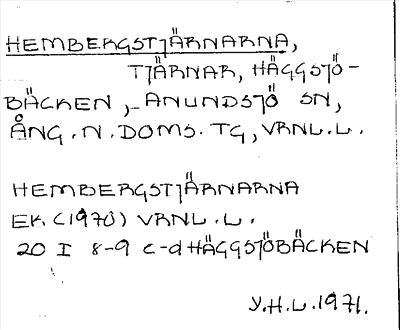 HEMBERGSTJÄRNARNA,
TJÄRNAR, HÄGGSJÖ-
BÄCKEN, ANUNDSJÖ SN,
ÅNG. N. DOMS. TG, VRNL. L.
HEMBERGSTJÄRNARNA
EK (1970) VRNL. L.
20 I 8-9 c-d HÄGGSJÖBÄCKEN
Y.H.L. 1971.